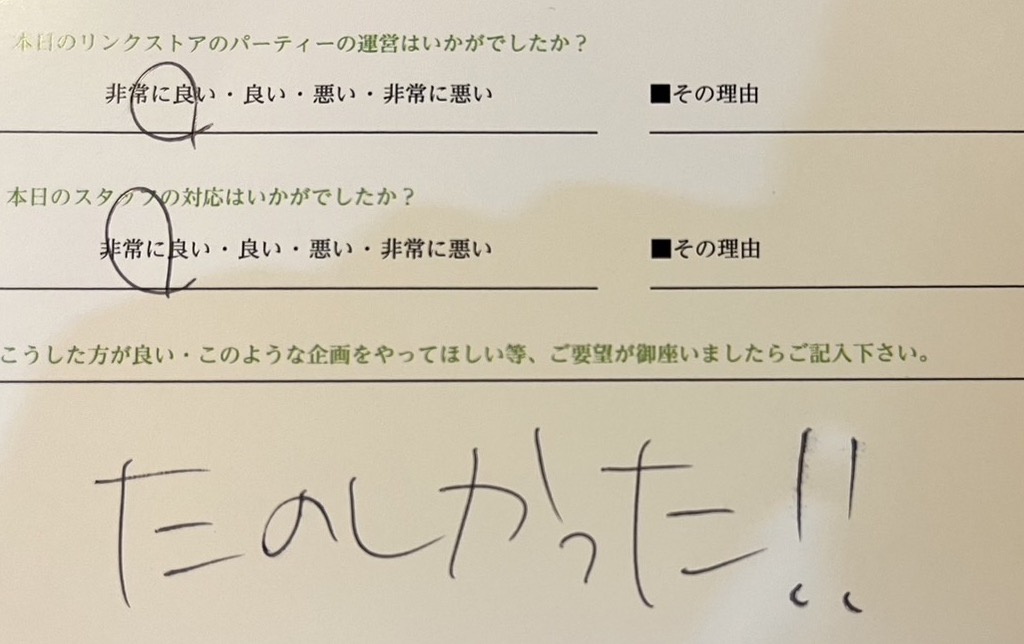 本日のリンクストアのパーティーの運営はいかがでしたか？
非常に良い・良い・悪い・非常に悪い ■その理由
本日のスタッフの対応はいかがでしたか？
非常に良い・良い・悪い・非常に悪い ■その理由
こうした方が良い・このような企画をやってほしい等、ご要望が御座いましたらご記入下さい。
たのしかった!!